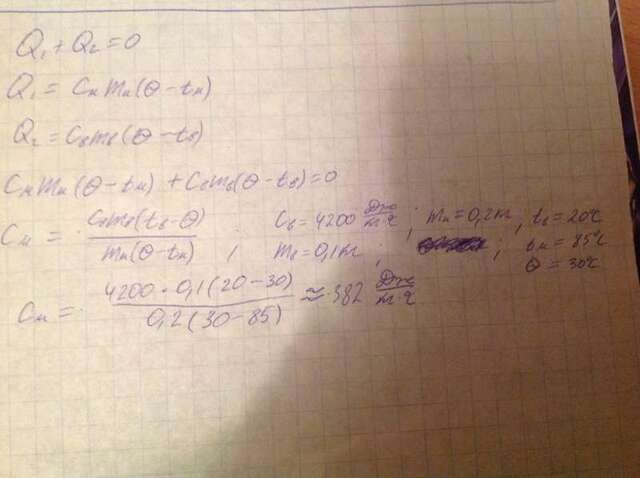 Q₁ + Q₂ = 0
Q₁ = Cм mм (θ − tм)
Q₂ = Cв mв (θ − tв)
Cм mм (θ − tм) + Cв mв (θ − tв) = 0
Cм = Cв mв (tв − θ) / mм (θ − tм) ; Cв = 4200 Дж/кг·°C ; mм = 0,2 кг ; tв = 20°C
mв = 0,1 кг ; ; tм = 85°C
θ = 30°C
Cм = 4200 · 0,1 (20 − 30) / 0,2 (30 − 85) ≈ 382 Дж/кг·°C